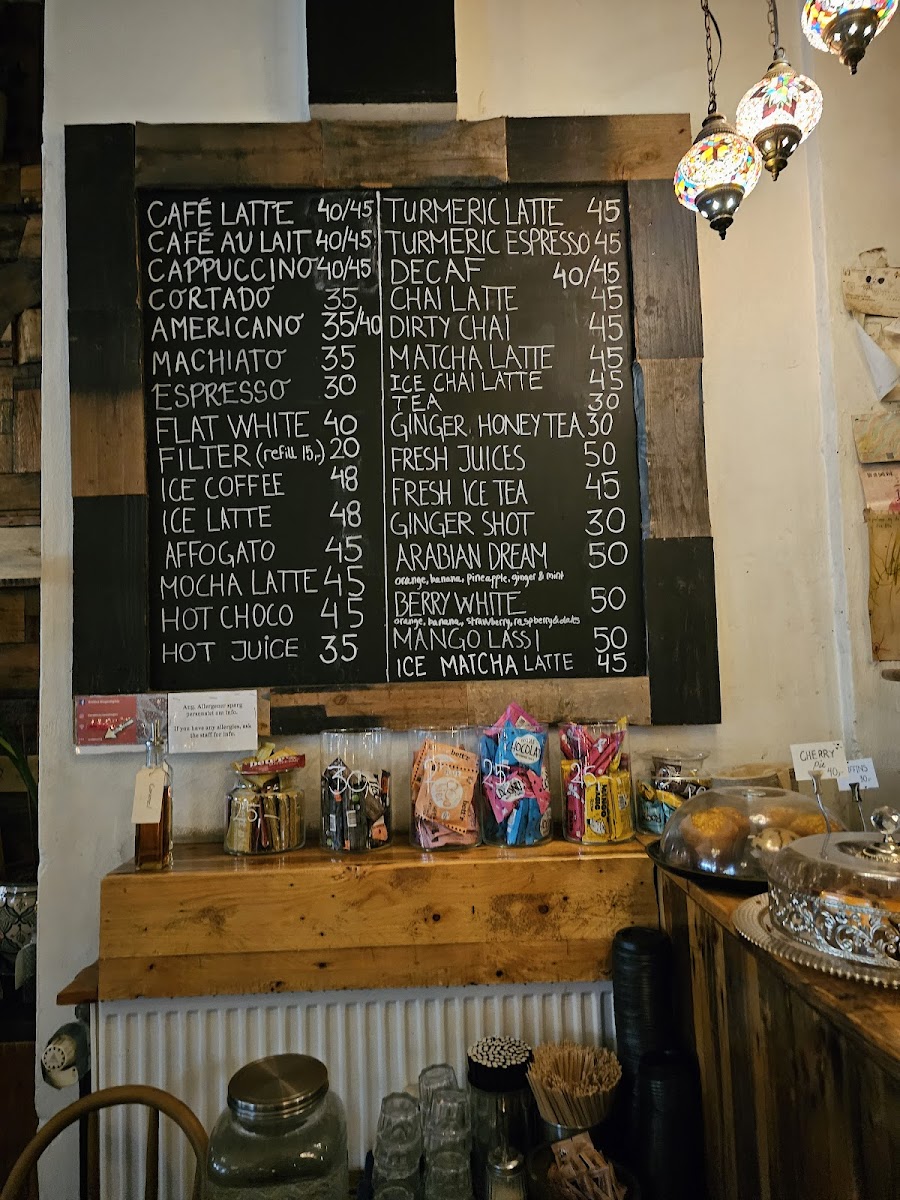 CAFÉ LATTE 40/45
CAFÉ AU LAIT 40/45
CAPPUCCINO 40/45
CORTADO 35
AMERICANO 35/40
MACHIATO 35
ESPRESSO 30
FLAT WHITE 40
FILTER (refill 15,-) 20
ICE COFFEE 48
ICE LATTE 48
AFFOGATO 45
MOCHA LATTE 45
HOT CHOCO 45
HOT JUICE 35
TURMERIC LATTE 45
TURMERIC ESPRESSO 45
DECAF 40/45
CHAI LATTE 45
DIRTY CHAI 45
MATCHA LATTE 45
ICE CHAI LATTE 45
TEA 30
GINGER HONEY TEA 30
FRESH JUICES 50
FRESH ICE TEA 45
GINGER SHOT 30
ARABIAN DREAM 50
orange, banana, pineapple, ginger & mint
BERRY WHITE 50
orange, banana, strawberry, raspberry & dates
MANGO LASSI 50
ICE MATCHA LATTE 45
Ang. Allergener spørg
personalet om info.
If you have any allergies, ask
the staff for info.
Caramel
25
30
25
25
CHERRY
Pie 40,-